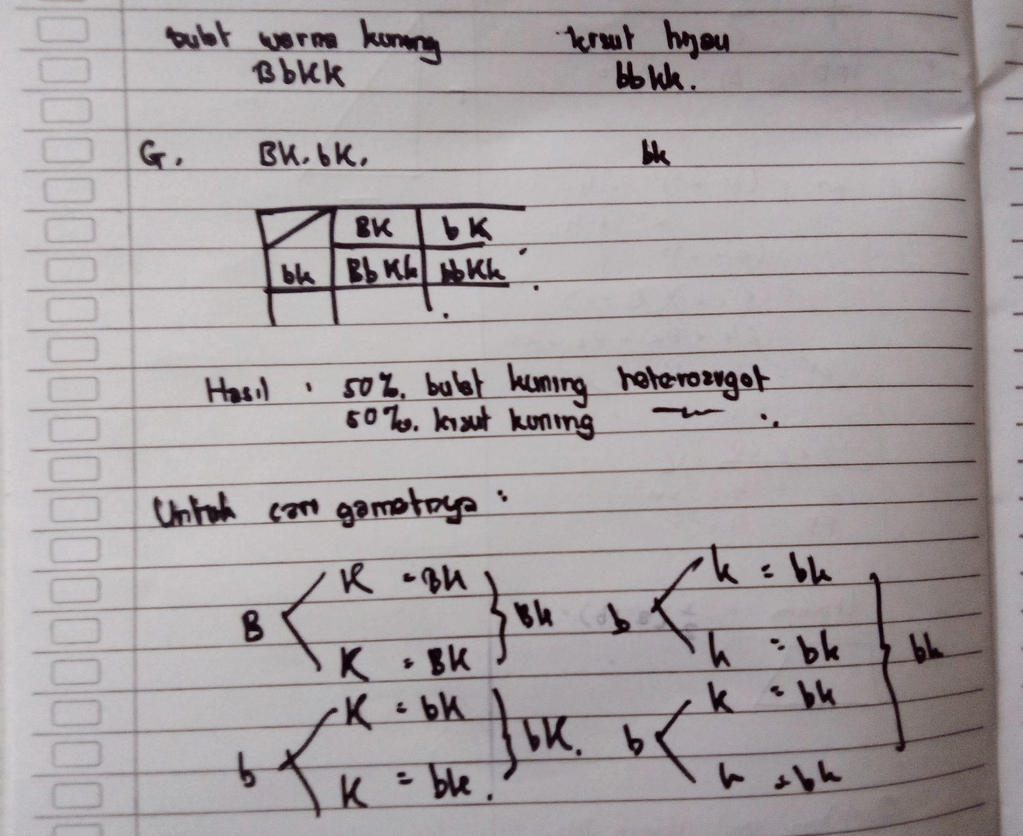 bulat warna kuning kisut hijau
BbKK bbkk.
G. BK. bK. bk
BK bK
bk BbKk bbKk
Hasil : 50%. bulat kuning heterozigot
50%. kisut kuning —〃—
Untuk cari gametnya :
B K = BK } BK b k = bk } bk
K = BK k = bk
b K = bK } bK. b k = bk
K = bK. k = bk